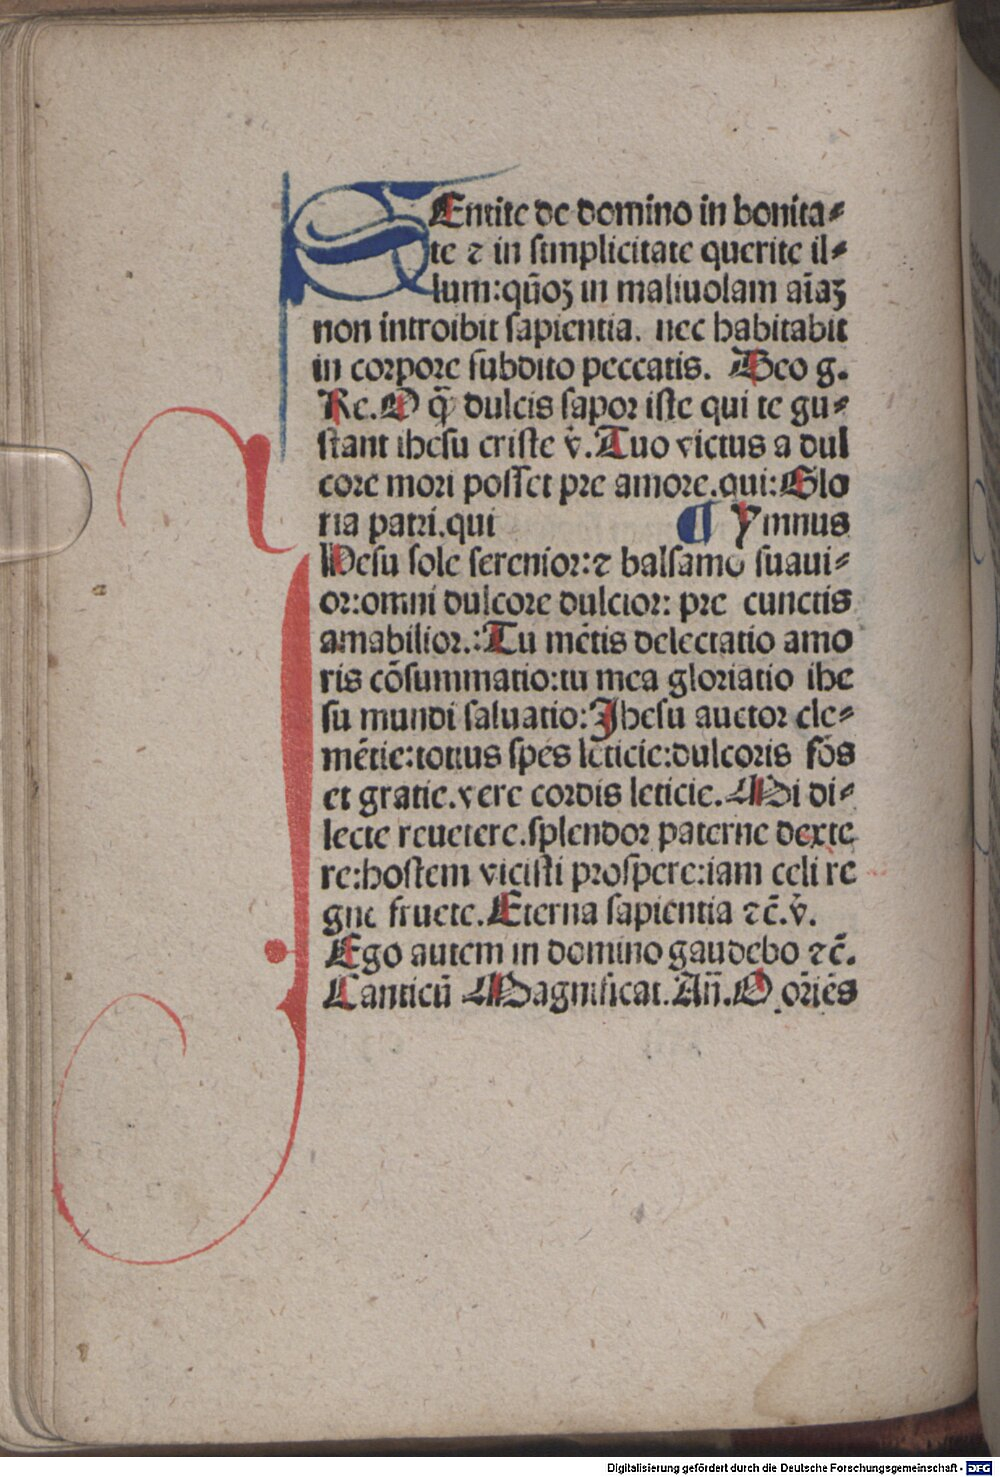 SEntite de domino in bonita⸗
te ⁊ in simplicitate querite il⸗
lum:qm̄oꝫ in maliuolam aīaꝫ
non introibit sapientia. nec habitabit
in corpore subdito peccatis. Deo g.
Re.O q̄ dulcis sapor iste qui te gu⸗
stant ihesu criste v̇.Tuo victus a dul
core mori posset pre amore.qui:Glo
ria patri.qui ¶ Ymnus
IHesu sole serenior:⁊ balsamo suaui⸗
or:omni dulcore dulcior: pre cunctis
amabilior.:Tu mētis delectatio amo
ris cōsummatio:tu mea gloriatio ihe
su mundi saluatio:Jhesu auctor cle⸗
mētie:totius spes leticie:dulcoris fōs
et gratie.vere cordis leticie.Mi di⸗
lecte reuertere.splendor paterne dexte
re:hostem vicisti prospere:iam celi re
gne fruere.Eterna sapientia ⁊c̄.v̇.
Ego autem in domino gaudebo ⁊c̄.
Canticū Magnificat.An̄.O oriēs
Digitalisierung gefördert durch die Deutsche Forschungsgemeinschaft - DFG